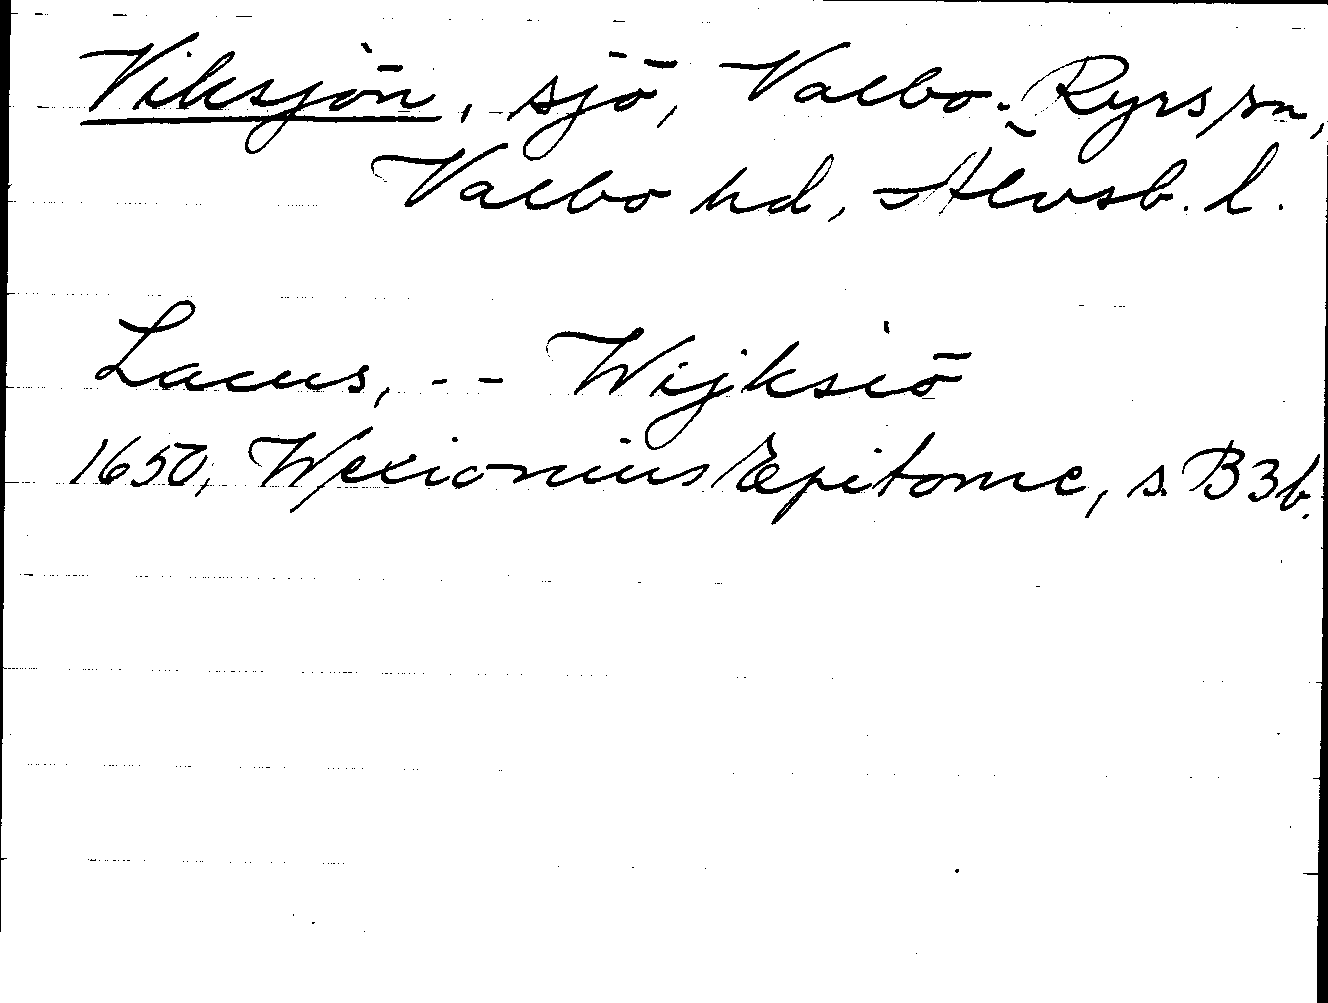 Viksjön, sjö, Valbo-Ryrs sn,
Valbo hd, Älvsb. l.
Lacus, -- Wijksiö
1650, Wexionius Epitome, s. B3b.